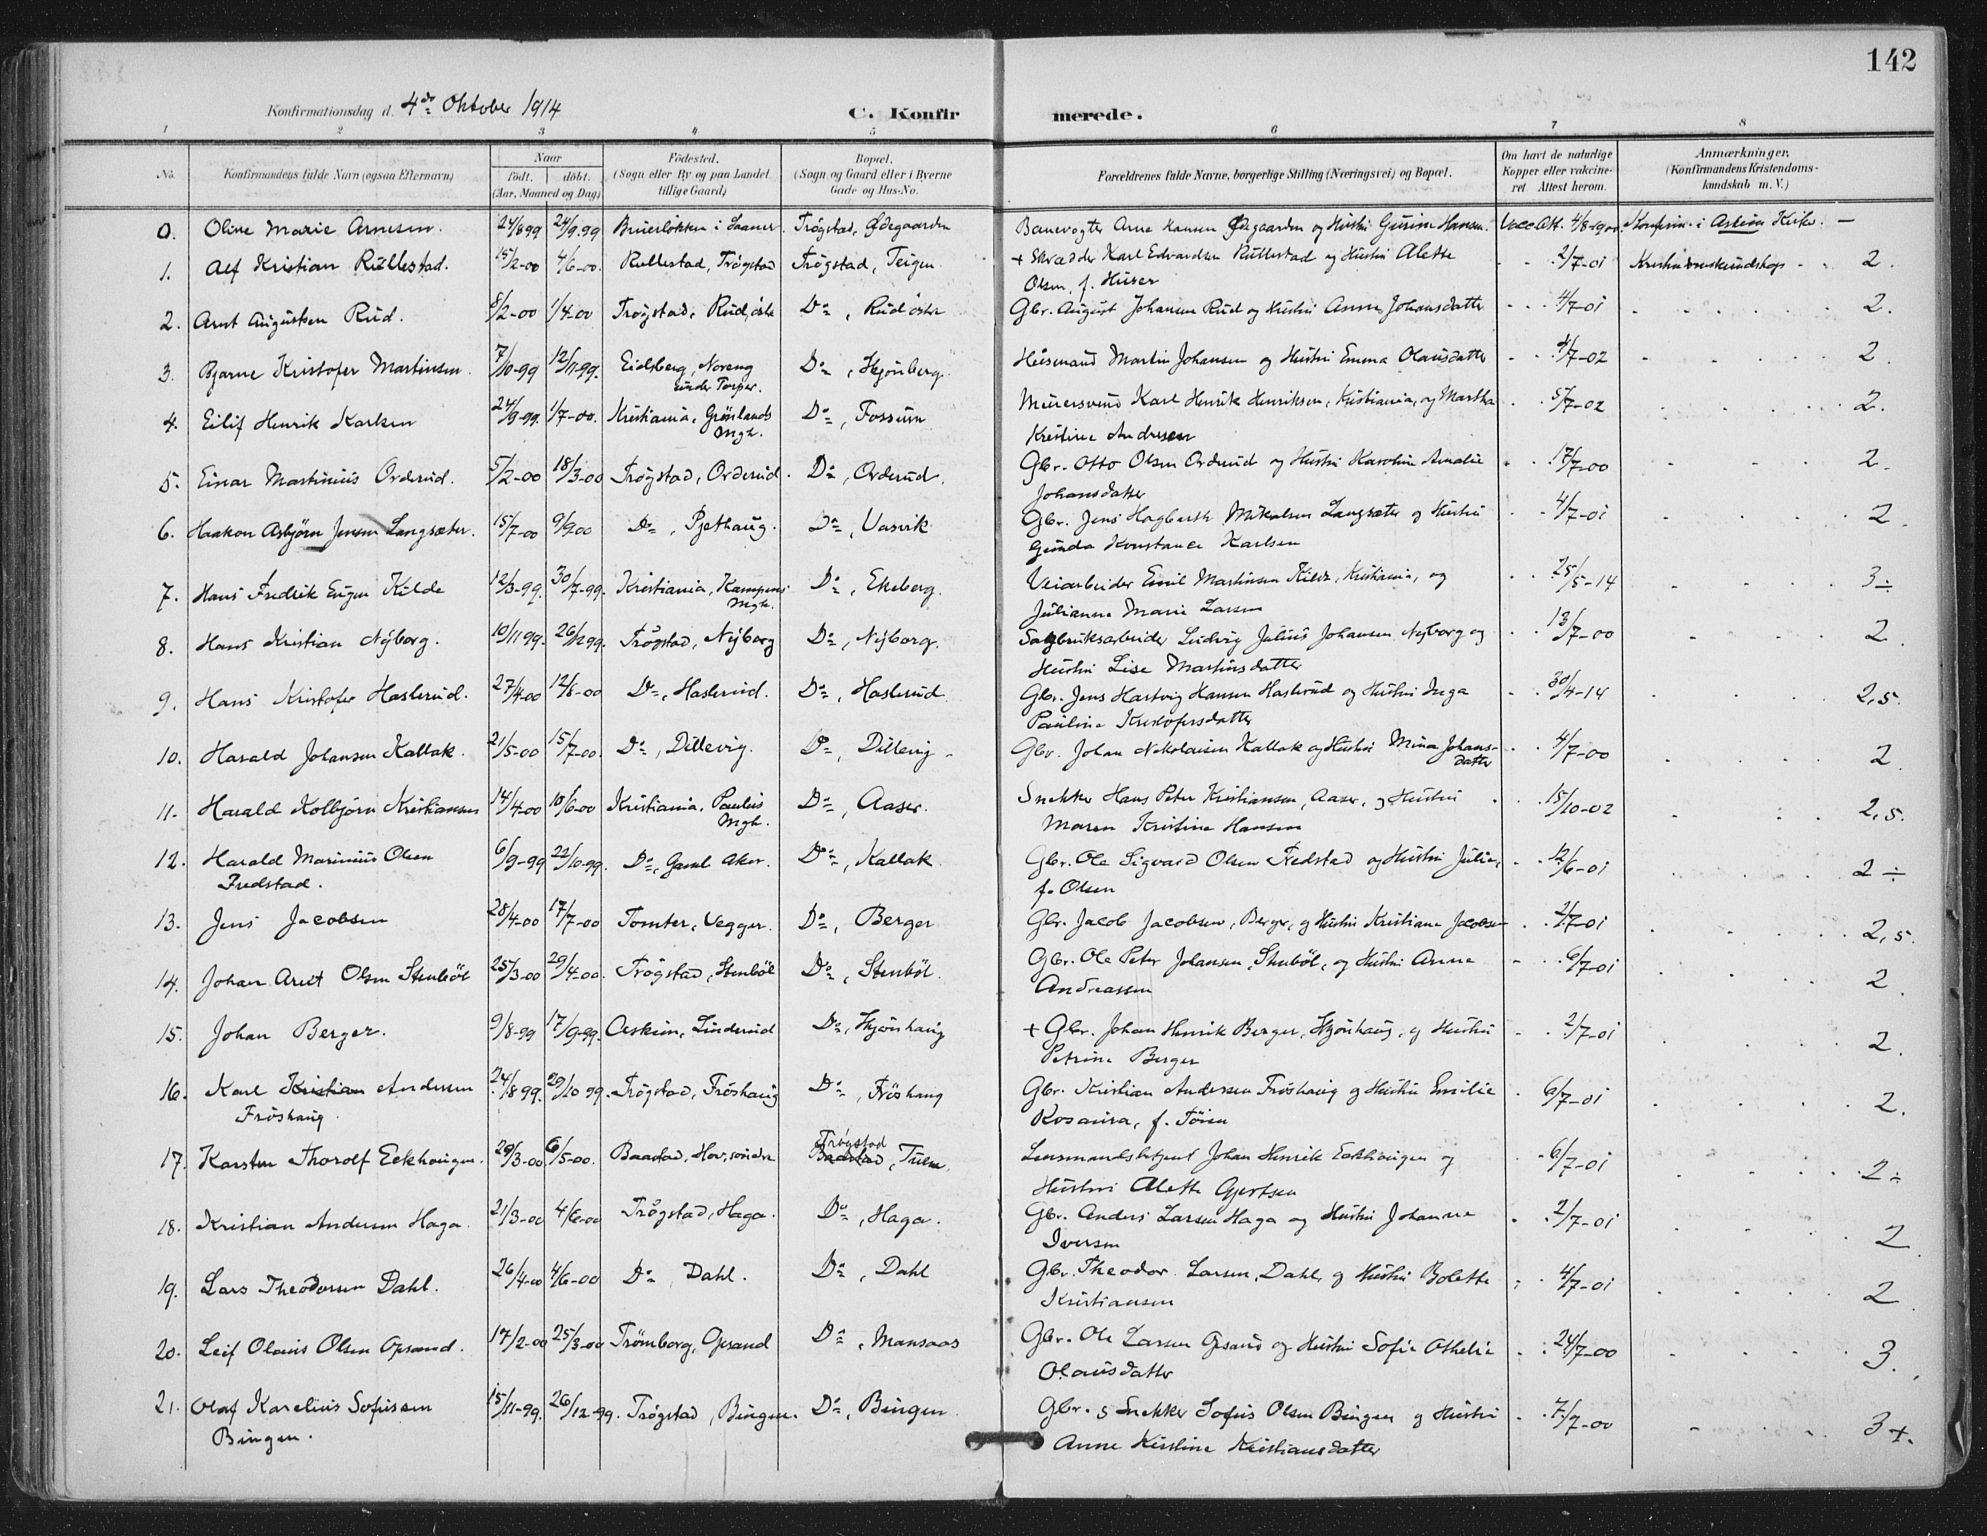 142
Konfirmationsdag d. 4de Oktober 1914
C. Konfirmerede.
1 2 3 4 5 6 7 8
No. | Konfirmandens fulde Navn (ogsaa Efternavn) | Naar født. døbt. (Aar, Maaned og Dag) | Födested. (Sogn eller By og paa Landet tillige Gaard) | Bopæl. (Sogn og Gaard eller i Byerne Gade og Hus-No. | Forældrenes fulde Navne, borgerlige Stilling (Næringsvei) og Bopæl. | Om havt de naturlige Kopper eller vaccineret. Attest herom. | Anmærkninger. (Konfirmandens Kristendomskundskab m. V.)
0. Oline Marie Arnesen. 24/8 99 24/9 99 i Saaner. Trögstad, Ödegaarden Banevogter Arne Hansen Ödegaarden og Hustru Gurine Hansen. Vacc. Att. 4/8-1900. Konfirm. i Askim Kirke. —
1. Alf Kristian Rullestad. 15/2-00 4/6-00. Rullestad, Trögstad Trögstad, Teigen. + Skrædder Karl Edvardsen Rullestad og Hustru Alette 2/7-01 Kristendomskundskap 2.
Olsen, f. Huser
2. Arnt Augustsen Rud. 8/2-00 1/4-00 Trögstad, Rud, östre Do, Rud östre Gbr. August Johansen Rud og Hustru Anna Johansdatter 4/7-01 2.
3. Bjarne Kristofer Martinsen. 7/10-99 12/11-99. Eidsberg, Noreng Do, Hjönberg. Husmand Martin Johansen og Hustru Emma Olausdatter 4/7-02 2.
under Torper.
4. Eilif Henrik Karlsen 24/9-99. 1/7-00. Kristiania, Grönlands Do, Fossum Murersvend Karl Henrik Henriksen, Kristiania, og Martha 5/7-02 2.
Mgh. Kristine Andresen
5. Einar Martinius Orderud. 5/2-00 18/3-00 Trögstad, Orderud. Do, Orderud. Gbr. Otto Olsen Orderud og Hustru Karoline Amalie 17/7-00 2.
Johansdatter
6. Haakon Asbjörn Jensen Langsæter. 15/7-00 9/9 00 Do, Pjethaug. Do, Vasvik. Gbr. Jens Hagbarth Mikalsen Langsæter og Hustru 4/7-01 2.
Gunda Konstance Karlsen
7. Hans Fredrik Eugen Kilde 12/3-99. 30/7-99. Kristiania, Kampens Do, Ekeberg. Veiarbeider Emil Martinsen Kilde, Kristiania, og 25/5-14 3÷
Mgh. Julianne Marie Larsen
8. Hans Kristian Nyborg. 10/11 99. 26/12 99. Trögstad, Nyborg Do, Nyborg. Sagbruksarbeider Ludvig Julius Johansen Nyborg og 13/7-00 2.
Hustru Lise Martinsdatter
9. Hans Kristofer Haslerud. 27/4-00 12/8-00 Do, Haslerud. Do, Haslerud. Gbr. Jens Hartvig Hansen Haslerud og Hustru Inga 30/4-14 2,5.
Pauline Kristofersdatter
10. Harald Johansen Kallak. 21/5-00 15/7-00. Do, Dillevig. Do, Dillevig. Gbr. Johan Nikolaisen Kallak og Hustru Mina Johans- 4/7-00 2.
datter
11. Harald Kolbjörn Kristiansen 14/4-00 10/6-00 Kristiania, Paulus Do, Aaser. Snekker Hans Peter Kristiansen, Aaser, og Hustru 15/10-02 2,5.
Mgh. Maren Kristine Hansen
12. Harald Marinius Olsen 6/9-99 22/10-99. Do, Gaml Aker. Do, Kallak. Gbr. Ole Sigvard Olsen Fredstad og Hustru Julie, 12/6-01 2÷
Fredstad. f. Olsen
13. Jens Jacobsen 28/4-00 17/7-00 Tomter, Vegger. Do, Berger Gbr. Jacob Jacobsen, Berger, og Hustru Kristiane Jacobsen 2/7-01 2,5.
14. Johan Arvet Olsen Stenböl 25/3-00 29/4-00. Trögstad, Stenböl Do, Stenböl. Gbr. Ole Peter Johansen, Stenböl, og Hustru Anne 6/7-01 2.
Andreassen
15. Johan Berger. 9/8-99 17/9-99. Askim, Linderud Do, Hjönhaug + Gbr. Johan Henrik Berger, Hjönhaug, og Hustru 2/7-01 2.
Petrine Berger
16. Karl Kristian Andersen 24/8 99. 29/10 99. Trögstad, Fröshaug Do, Fröshaug Gbr. Kristian Andersen Fröshaug og Hustru Emilie 6/7-01 2.
Fröshaug. Rosaura, f.
17. Karsten Thorolf Eckhaugen. 29/3-00 6/5-00. Baastad, Hov, söndre Trögstad Baastad, Lensmandsbetjent Johan Henrik Eckhaugen og 6/7-01 2÷
Hustru Alette Gjertsen
18. Kristian Andersen Haga. 21/3-00 4/6-00 Trögstad, Haga. Do, Haga. Gbr. Anders Larsen Haga og Hustru Johanne 2/7-01 2
Iversen
19. Lars Theodorsen Dahl. 26/4-00 4/6-00 Do, Dahl. Do, Dahl Gbr. Theodor Larsen, Dahl, og Hustru Bolette 4/7-01 2
Kristiansen
20. Leif Olaus Olsen Opsand. 17/2-00 25/3-00 Trömborg, Opsand Do, Mansaas Gbr. Ole Larsen Opsand og Hustru Sofie Othelie 24/7-00 3.
Olausdatter
21. Olaf Karelius Sofussen 15/11-99. 26/12-99. Trögstad, Bingen. Do, Bingen Gbr. & Snekker Sofus Olsen Bingen og Hustru 7/7-00 3+.
Bingen. Anne Kirstine Kristiansdatter